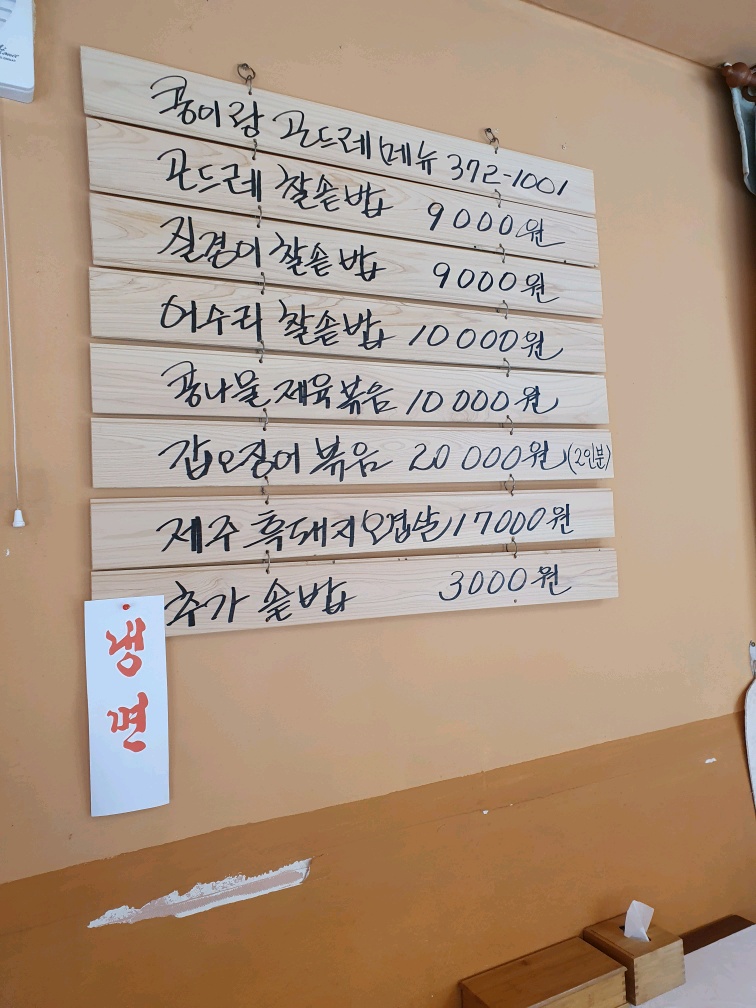 콩이랑 곤드레 메뉴 372-1001
곤드레 찰솥밥 9000원
질경이 찰솥밥 9000원
어수리 찰솥밥 10000원
콩나물 제육볶음 10000원
갑오징어 볶음 20000원 (2인분)
제주 흑돼지오겹살 17000원
추가 솥밥 3000원
냉면